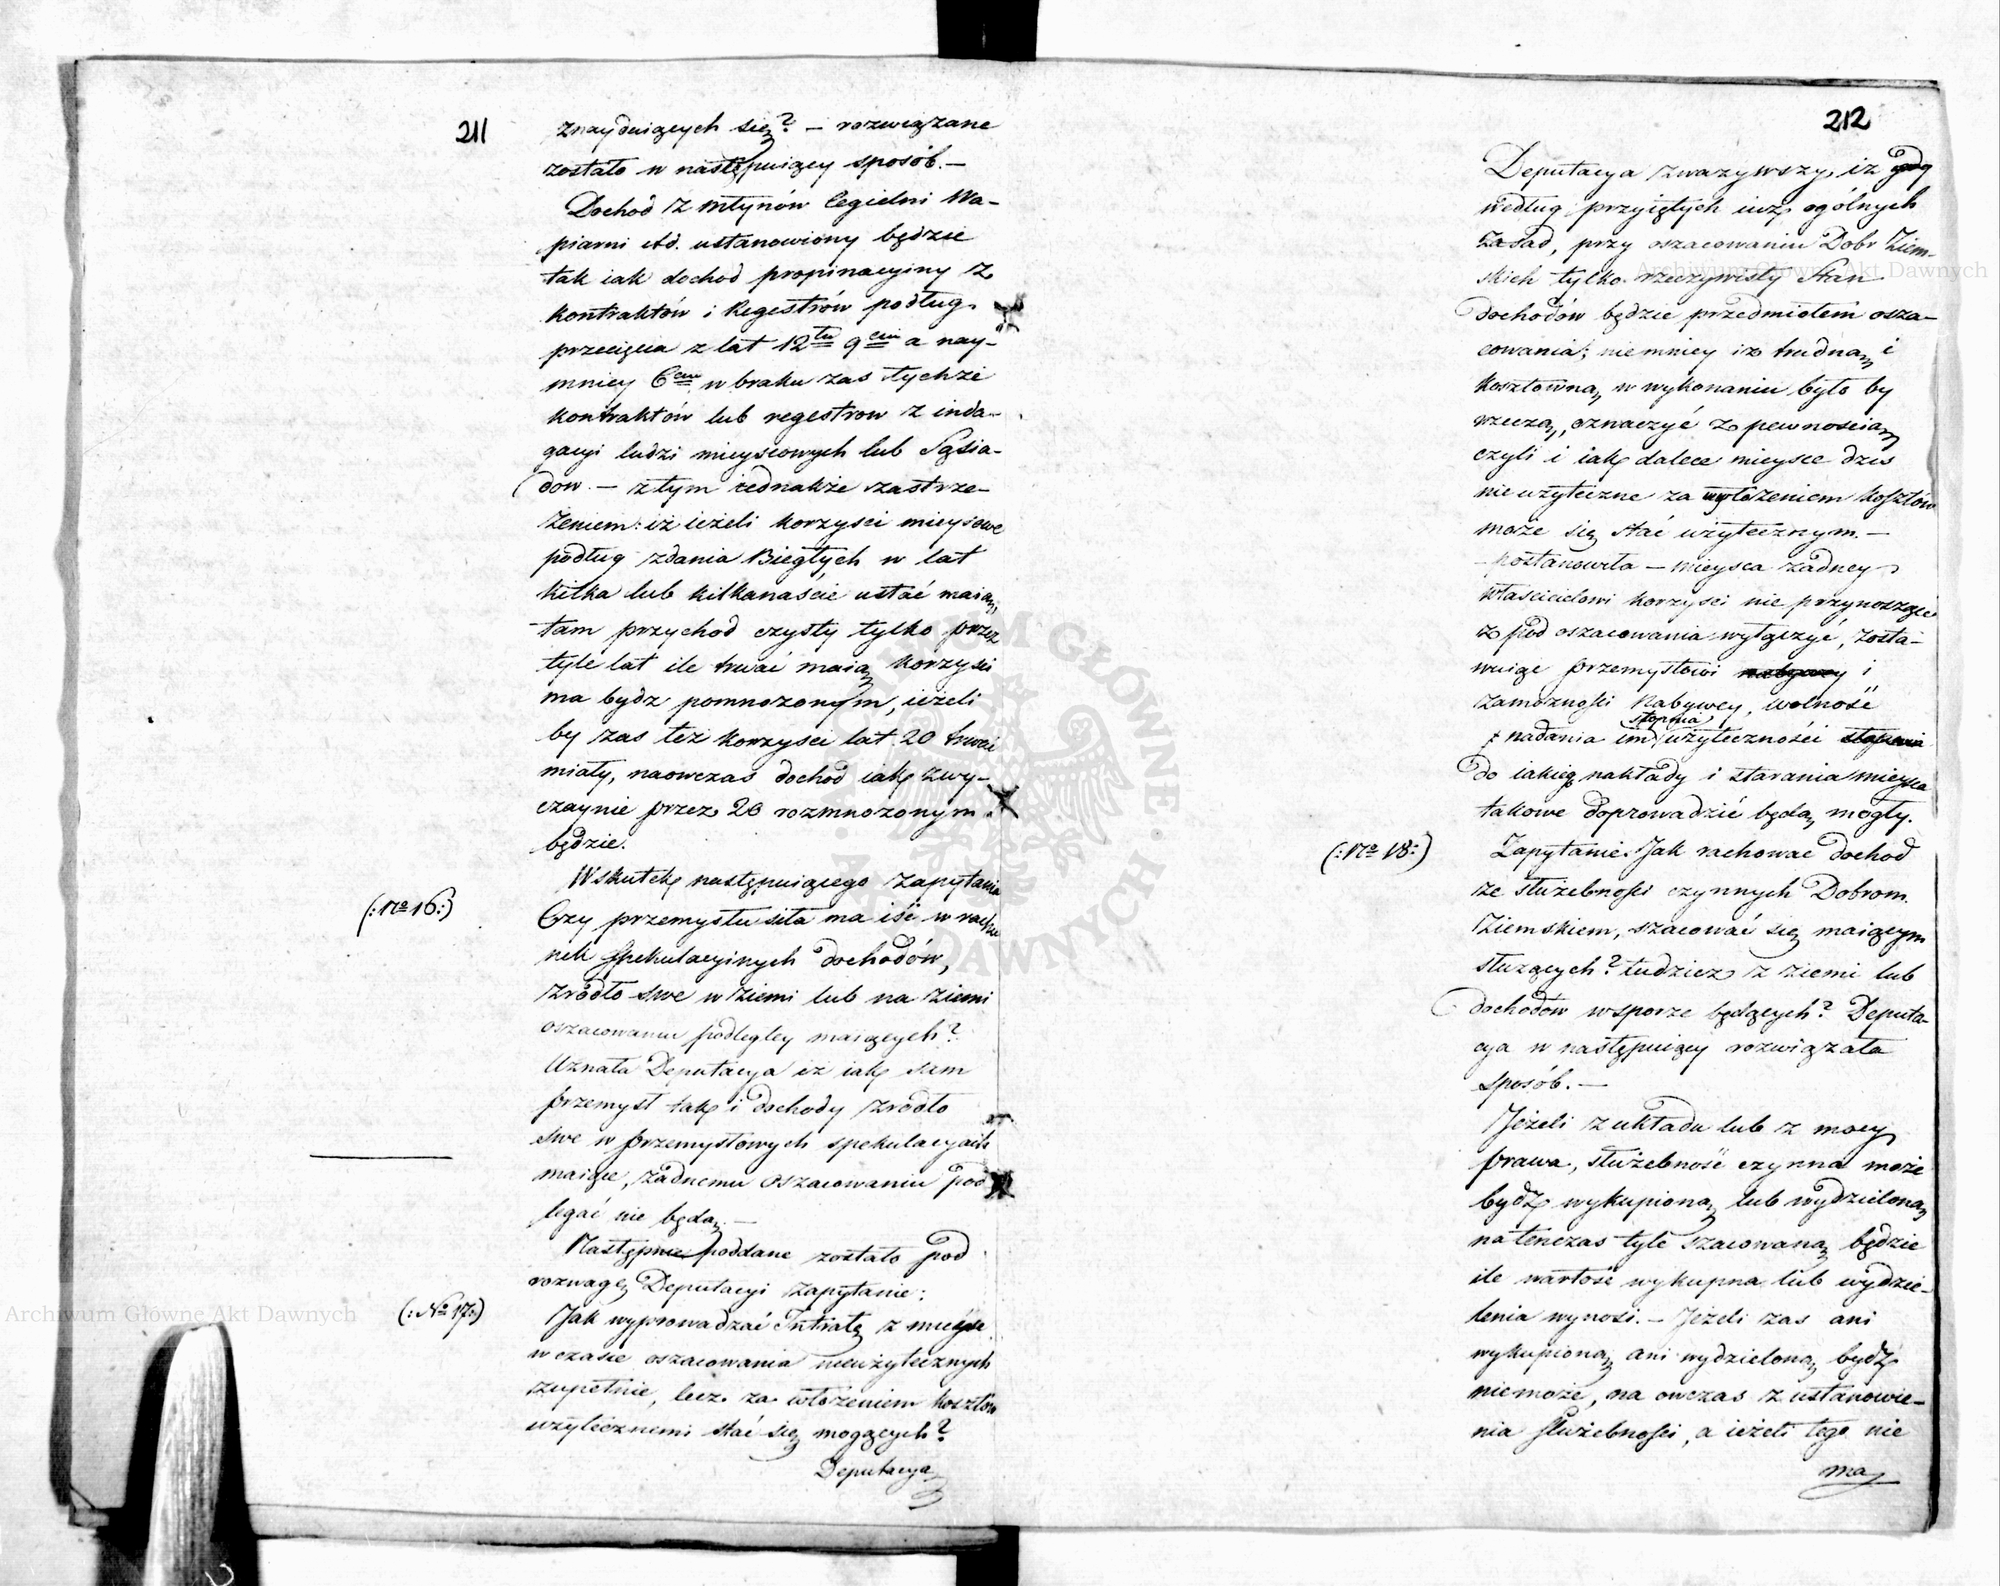 211
znayduiących się? – rozwiązane
zostało w następuiący sposób. –
Dochód z Młynów Cegielni Wa-
piarni etd. ustanowiony będzie
tak iak dochod propinacyiny z
kontraktów i Regestrów podług
przecięcia z lat 12tu 9ciu a nay-
mniey 6ciu w braku zas tychże
kontraktów lub regestrow z inda-
gacyi ludzi mieyscowych lub Sąsia-
dow. – z tym iednakże zastrze-
żeniem: iż ieżeli korzysci mieyscowe
podług zdania Biegłych w lat
kilka lub kilkanaście ustać maią,
tam przychod czysty tylko przez
tyle lat ile trwać maią korzysci
ma bydz pomnozonym, ieżeli
by zas też korzysci lat 20 trwać
miały, naowczas dochod iak zwy-
czaynie przez 20 rozmnozonym
będzie.
(: No 16 :)
W skutek następuiącego zapytania
Czy przemysłu siła ma iść w rachu
nek Spekulacyinych dochodów,
zrodło swe w ziemi lub na ziemi
oszacowaniu podległey maiących?
Uznała Deputacya iż iak sam
przemysł tak i dochody zrodło
swe w przemysłowych spekulacyach
maiące, żadnemu oszacowaniu pod
legać nie będą. –
Następnie poddane zostało pod
rozwagę Deputacyi zapytanie:
(: No 17 :)
Jak wyprowadzać Intratę z mieysc
w czasie oszacowania nieużytecznych
zupełnie, lecz za włożeniem kosztów
użytecznemi stać się mogących?
Deputacya
212
Deputacya zwazywszy, iz gdy
według przyiętych iuz ogólnych
zasad, przy oszacowaniu Dobr Ziem-
skich tylko rzeczywisty stan
dochodów będzie przedmiotem osza-
cowania; niemniey iz trudną i
kosztowną w wykonaniu było by
rzeczą, oznaczyć z pewnoscią
czyli i iak dalece mieysce dzis
nieuzyteczne za wyłożeniem kosztów
może się stać użytecznym. –
– postanowiła – mieysca żadney
właścicielowi korzysci nie przynoszące
z pod oszacowania wyłączyć, zosta-
wuiąc przemysłowi nabywcy i
zamożnosci Nabywcy, wolność
stopnia
nadania im użyteczności stopnia
do iakiego nakłady i starania mieysca
takowe doprowadzić będą mogły.
(: No 18 :)
Zapytanie. Jak rachowac dochod
ze służebnosci czynnych Dobrom
Ziemskiem, szacować się maiącym
służących? tudziez z ziemi lub
dochodow w sporze będących? Deputa-
cya w następuiący rozwiązała
sposób. –
Jeżeli z układu lub z mocy
prawa, służebność czynna może
bydź wykupioną lub wydzieloną
natenczas tyle szacowaną będzie
ile wartość wykupna lub wydzie-
lenia wynosi. – Jeżeli zas ani
wykupioną ani wydzieloną bydź
niemoże, na owczas z ustanowie-
nia służebnosci, a ieżeli tego nie
ma
Archiwum Główne Akt Dawnych
Archiwum Główne Akt Dawnych